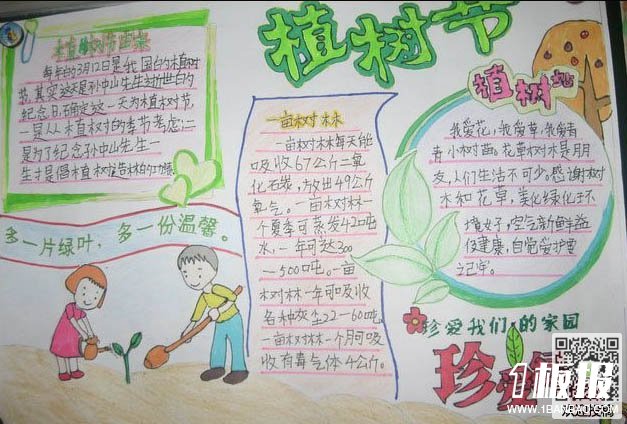 植树节
植树节由来
每年的3月12日是我国的植树
节。其实这是孙中山先生逝世的
纪念日。确定这一天为植树节,
一是从植树的季节考虑;二
是为了纪念孙中山先生一
生才是倡植树造林的功绩
多一片绿叶,多一份温馨。
一亩树林
一亩树林每天能
吸收67公斤二氧
化石炭,放出49公斤
氧气。一亩树林一
个夏季可蒸发42吨
水,一年可达300
—500吨。一亩
树林一年可吸收
各种灰尘22—60吨
一亩树林一个月可吸
收有毒气体4公斤。
植树
我爱花,我爱草,我爱青
青小树苗。花草树木是朋
友,人们生活不可少。感谢树
木和花草,美化绿化环
境好,空气新鲜益
健康,自觉爱护要
记牢。
珍爱我们的家园
珍爱
1板报
WWW.1BANBAO.COM